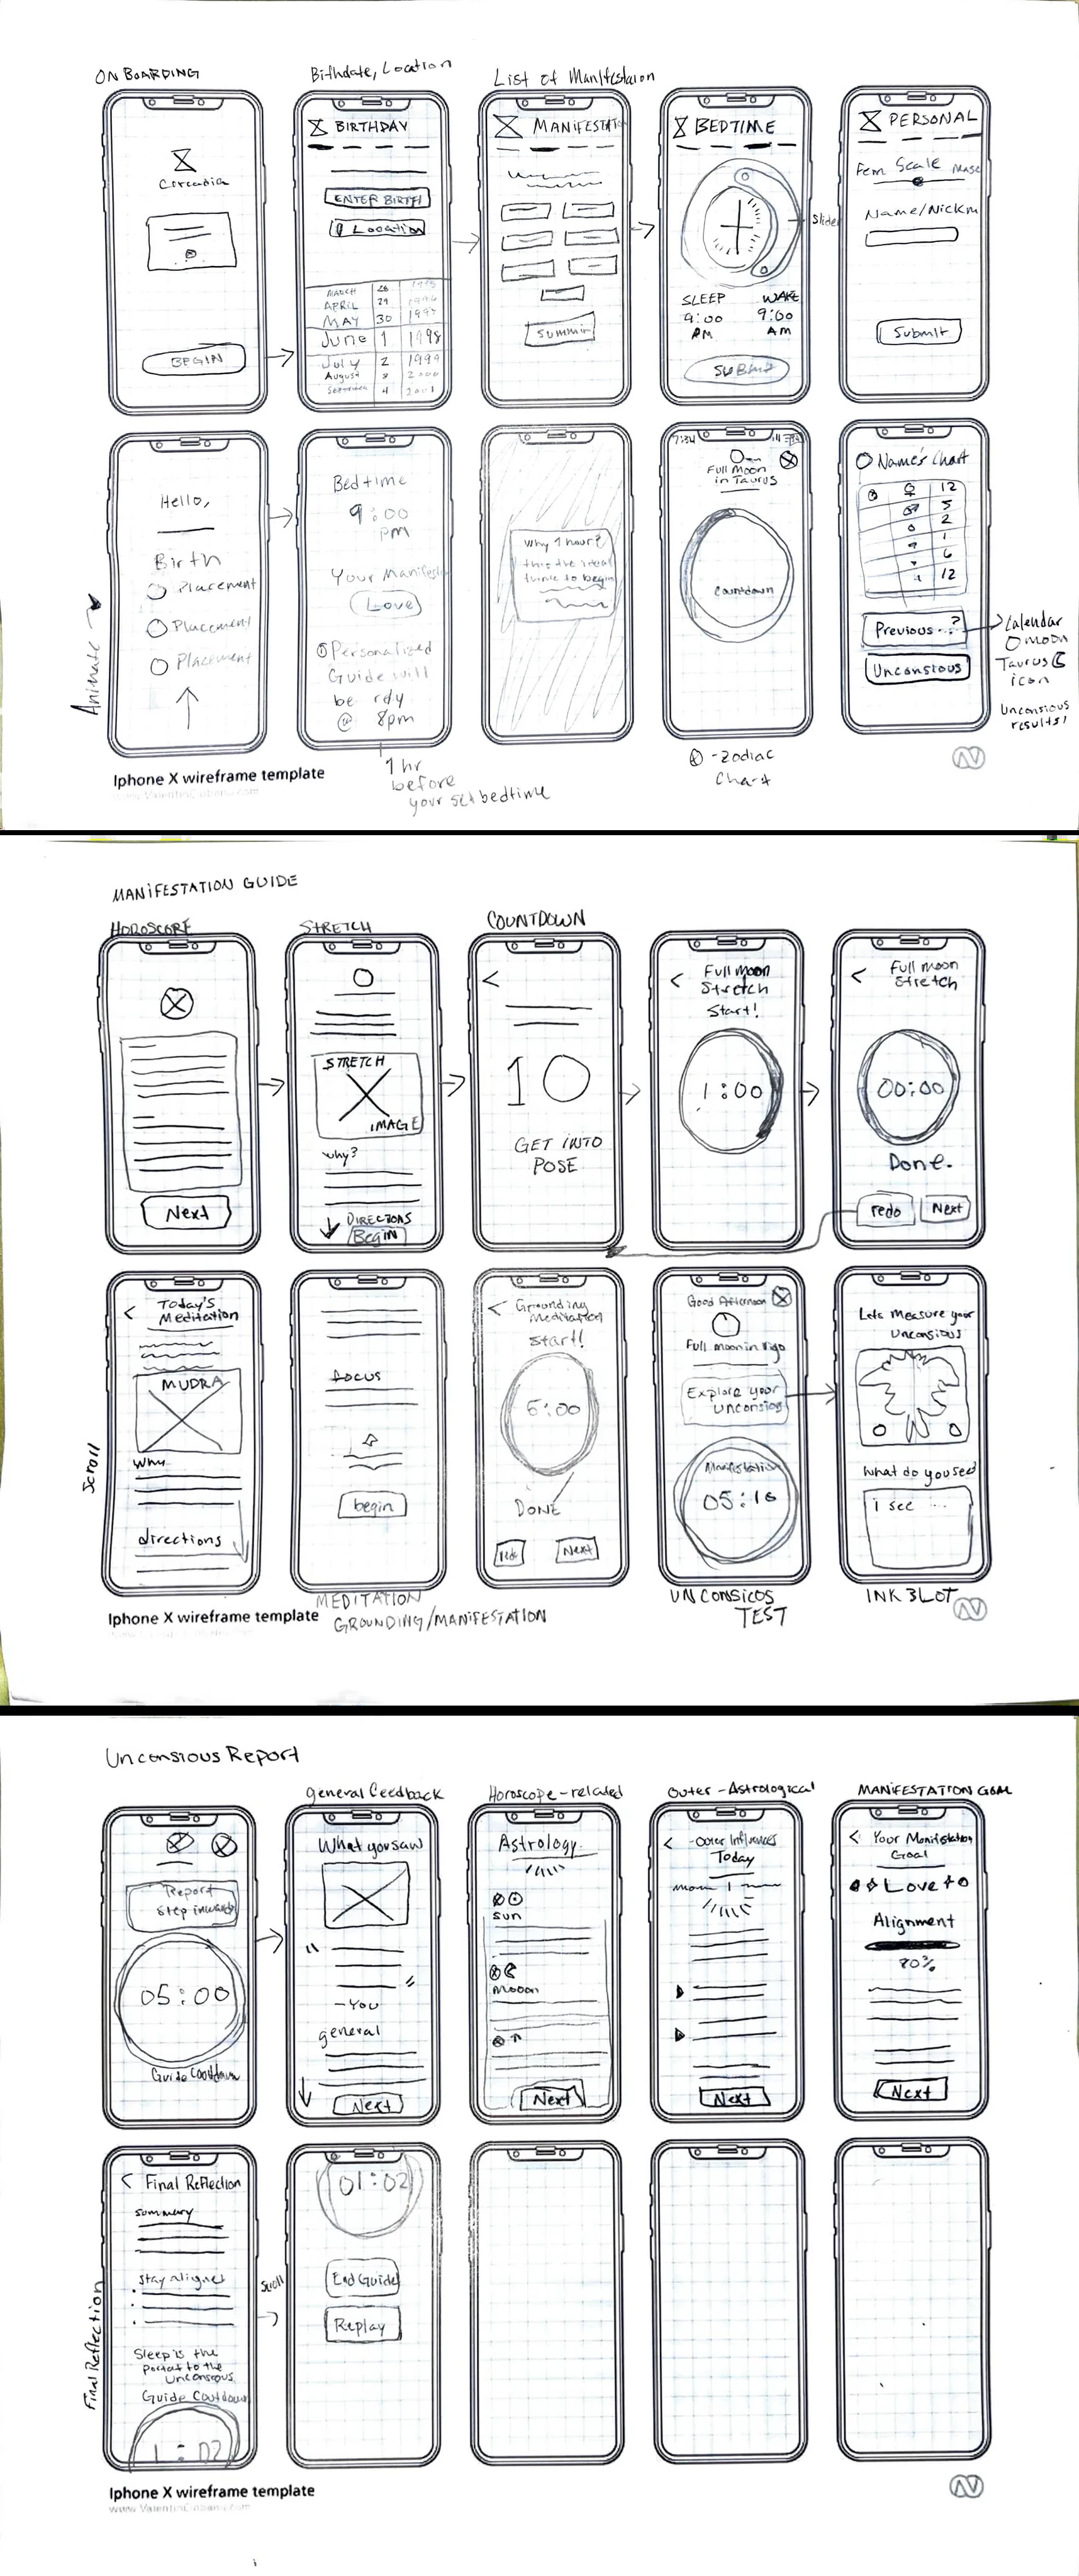 ON BOARDING
Birthdate, Location
List of Manifestaion
Circadia
BEGIN
BIRTHDAY
ENTER BIRTH
Location
MARCH 28 1995
APRIL 29 1996
MAY 30 1997
June 1 1998
July 2 1999
August 3 2000
September 4 2001
MANIFESTATIO
Summit
BEDTIME
Slider
SLEEP WAKE
9:00 9:00
PM AM
Submit
PERSONAL
Fem Scale Masc
Name/Nickm
Submit
Animate
Hello,
Birth
Placement
Placement
Placement
Bedtime
9:00
pm
Your Manifest
Love
Personalized
Guide will
be rdy
@ 8pm
1 hr
before
your set bedtime
Why 1 hour?
this the ideal
time to begin
7:34
Full Moon
in Taurus
Countdown
-Zodiac
Chart
Name's Chart
12
5
2
1
6
12
Previous ..?
Unconsious
Calendar
moon
Taurus
icon
Unconsious
results!
Iphone X wireframe template
www.ValentinCiobanu.com
MANIFESTATION GUIDE
HOROSCOPE
STRETCH
COUNTDOWN
Next
STRETCH
IMAGE
why?
DIRECTIONS
Begin
<
10
GET INTO
POSE
< Full moon
Stretch
Start!
1:00
< Full moon
Stretch
00:00
Done.
redo Next
Scroll
< Today's
Meditation
MUDRA
Why
directions
focus
begin
MEDITATION
GROUNDING/MANIFESTATION
< Grounding
Meditation
Start!
5:00
DONE
redo Next
Good Afternoon
Full moon in Virgo
Explore your
unconsious
Manifestation
05:16
UNCONSICOS
TEST
Lets measure your
Unconsious
What do you see?
i see ...
INK BLOT
Iphone X wireframe template
Unconsious Report
general feedback
Horoscope-related
Outer-Astrological
MANIFESTATION GOAL
Report
Step inwards
05:00
Guide Cootdown
What you saw
"
"
-You
general
Next
Astrology
Sun
Mooon
Next
< -Outer Influences
Today
Next
< Your Manifestation
Goal
Love
Alignment
80%
Next
Final Reflection
< Final Reflection
summary
stay aligned
Sleep is the
portal to the
Unconscious
Guide Cootdown
1:02
Scroll
01:02
End Guide
Replay
Iphone X wireframe template
www.ValentinCiobanu.com